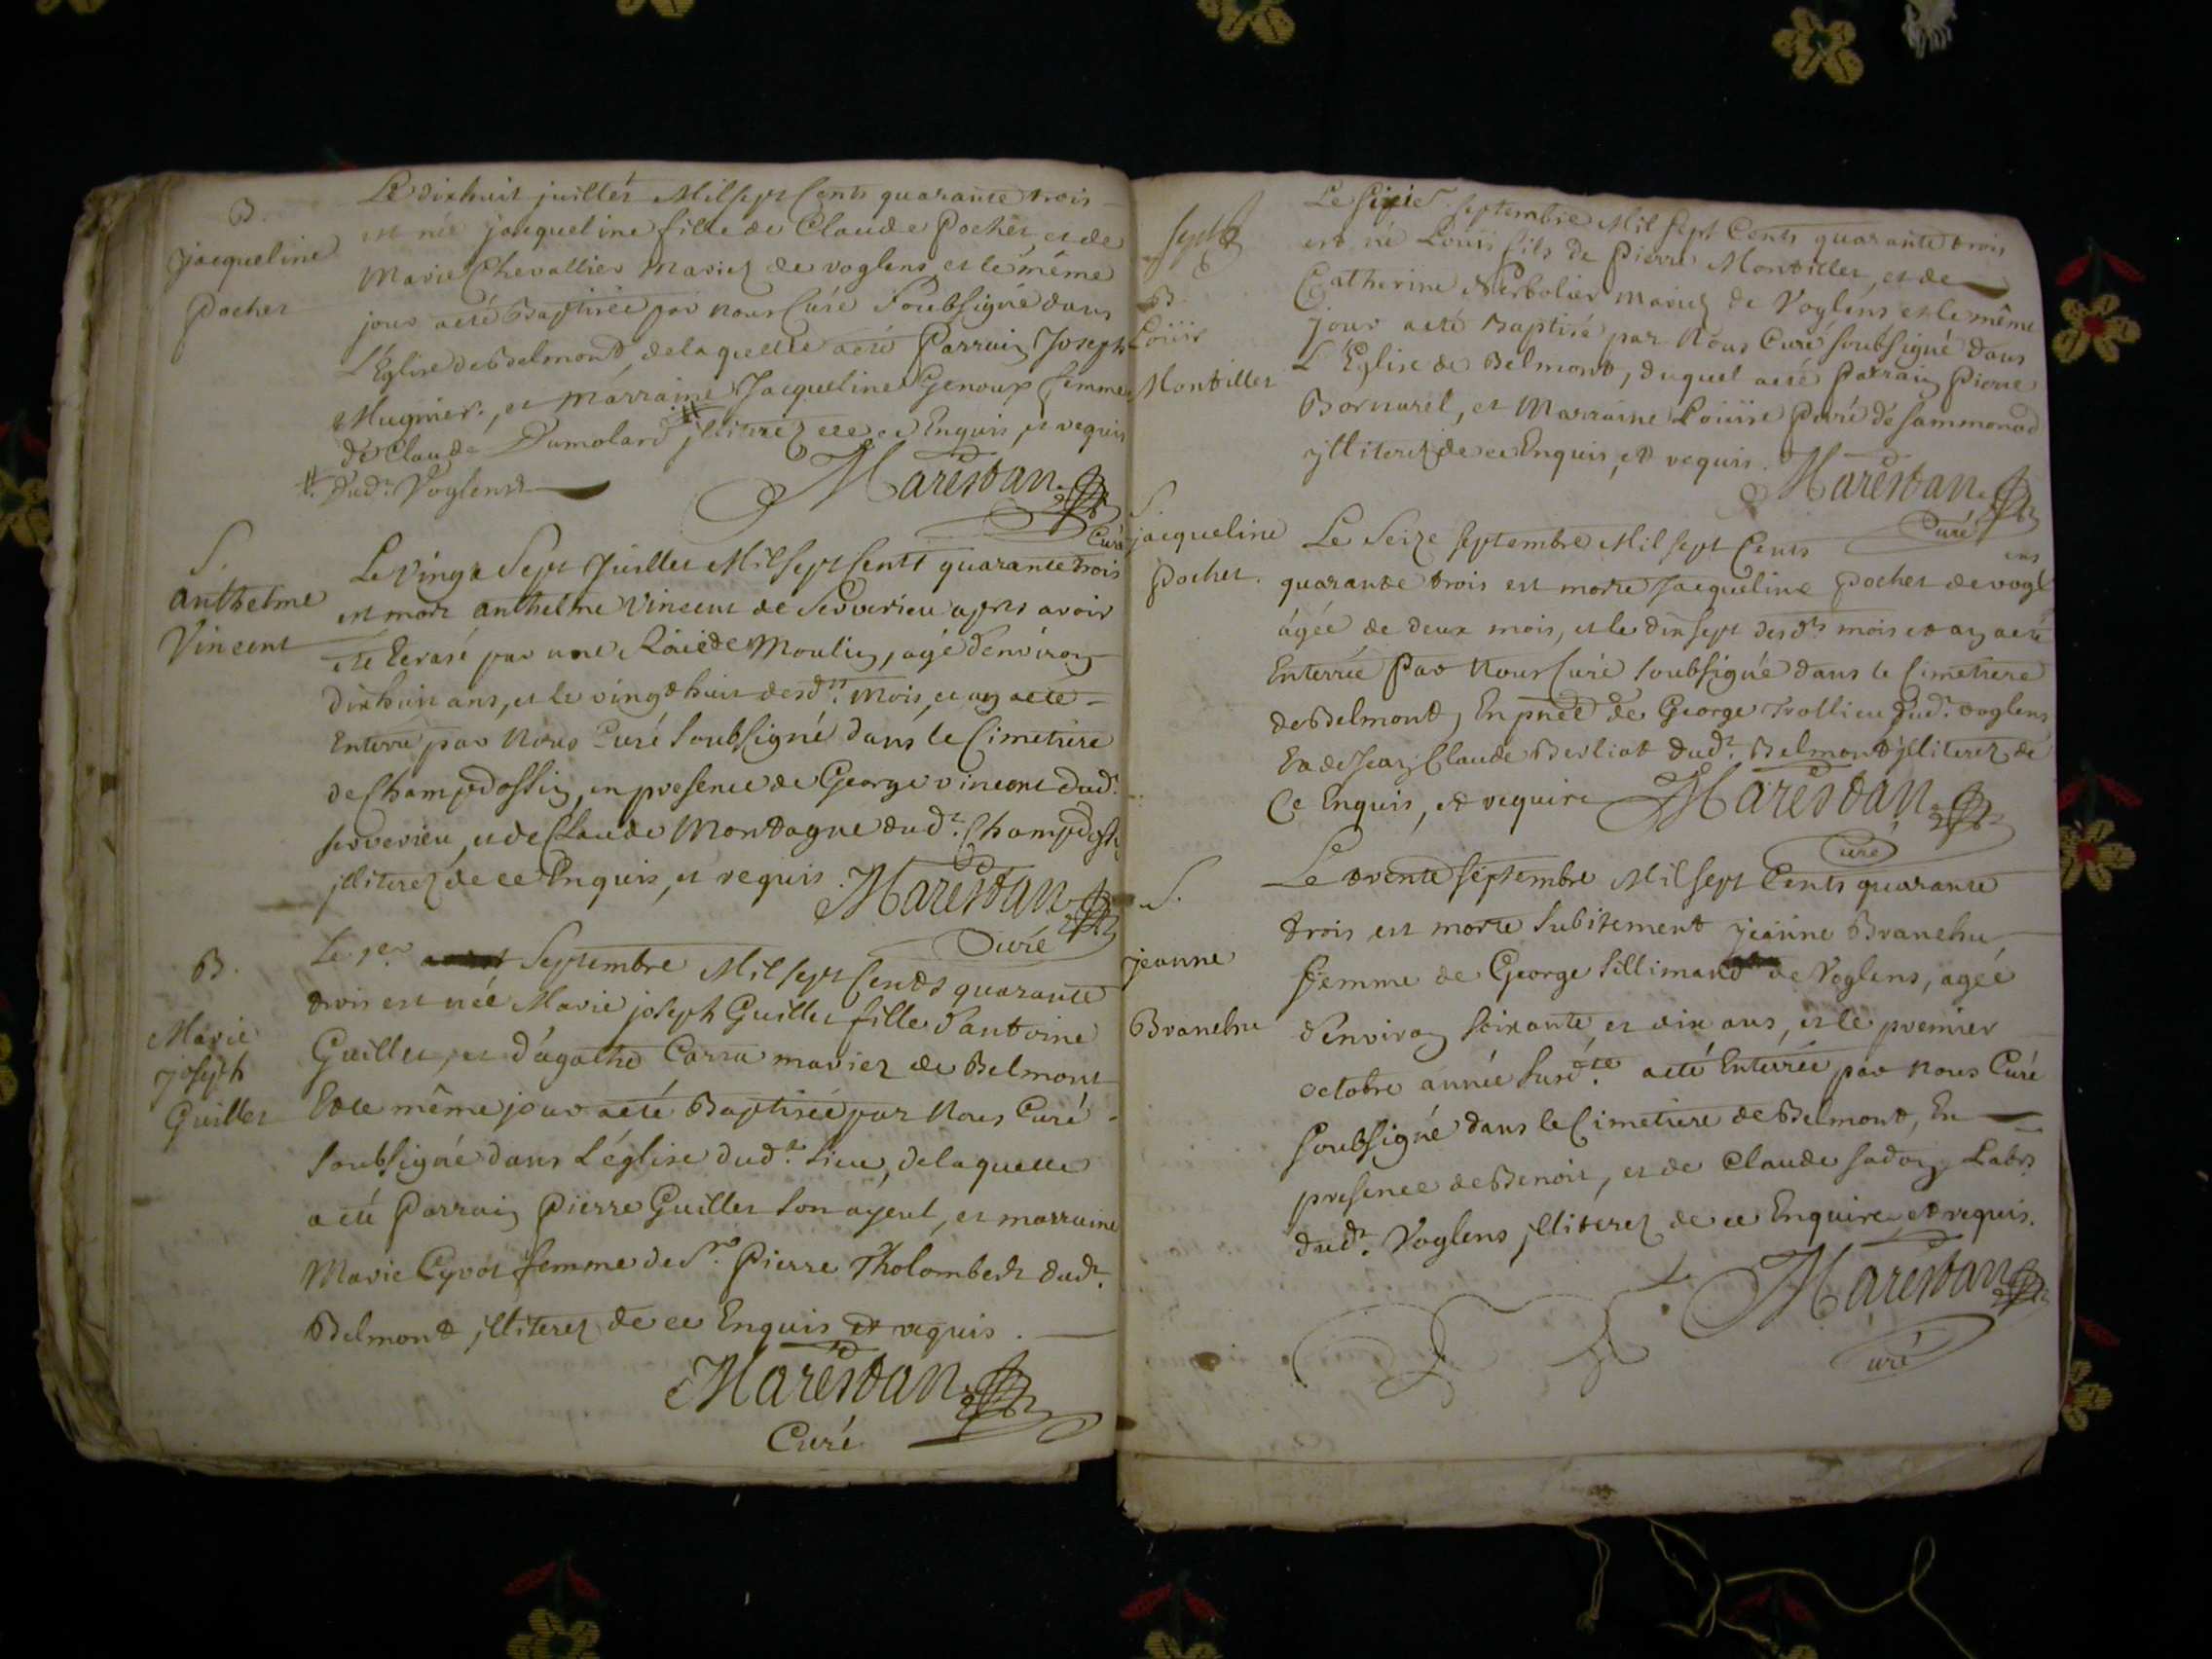 B.
jacqueline
Pochet
Le dixhuit juillet Mil sept Cents quarante trois
est née jacqueline fille de Claude Pochet, et de
Marie Chevallier mariez de voglens et le même
jour a eté Baptisée par nous Curé Soubsigné dans
L'Eglise de Belmont, de laquelle a eté Parrain Joseph
Mugnier, et marraine Jacqueline Genoux femme
de Claude Dumolard # jlliterez de ce Enquis, et requis
# dud.t Voglens
Marestan
Curé
S.
anthelme
Vincent
Le vingt Sept Juillet Mil Sept Cents quarante trois
est mort anthelme Vincent de Serverieu apres avoir
eté Ecrasé par une Roüe de Moulin, agé d'environ
dixhuit ans, et le vingt huit desd.ts mois, et an a eté
Enterré par Nous Curé Soubsigné dans le Cimetiere
de Champdossin, en presence de George vincent dud.t
serverieu, et de Claude Montagne dud.t Champdossin
jlliterez de ce Enquis, et requis. Marestan
Curé
B.
Marie
joseph
Guillet
Le 1er Septembre Mil Sept Cents quarante
trois est née Marie joseph Guillet fille d'antoine
Guillet, et d'agathe Carra mariez de Belmont
Et le même jour a eté Baptisée par Nous Curé
Soubsigné dans L'église dud.t Lieu, de laquelle
a eté Parrain Pierre Guillet Son ayeul, et marraine
Marie Cyvot femme de S.r Pierre Tholombert dud.t
Belmont jlliterez de ce Enquis et requis.
Marestan
Curé
B.
Loüis
Montillet
septembre Mil Sept Cents quarante trois
est né Loüis fils de Pierre Montillet, et de
Catherine mariez de Voglens et le même
jour a eté Baptisé par Nous Curé Soubsigné dans
L'Eglise de Belmont, duquel a eté Parrain Pierre
Bornarel, et Marraine Loüise
jlliterez de ce Enquis, et requis. Marestan
Curé
S.
jacqueline
Pochet.
Le Seize Septembre Mil sept Cents
quarante trois est morte Jacqueline Pochet de voglens
âgée de deux mois, et le dix sept desd.ts mois et an a eté
Enterrée Par Nous Curé Soubsigné dans le Cimetiere
de Belmont, En pñce de George Trollieu dud.t voglens
Et de Jean Claude Berliat dud.t Belmont jlliterez de
Ce Enquis, et requis Marestan
Curé
S.
jeanne
Branche
Le trente Septembre Mil sept Cents quarante
trois est morte Subitement jeanne Branche
femme de George Sillimand de Voglens, agée
d'environ Soixante, et dix ans, et le premier
octobre année Susd.te a eté Enterrée par nous Curé
Soubsigné dans le Cimetiere de Belmont, En
presence de Benoit, et de Claude Sadon Labrs
dud.t Voglens jlliterez de ce Enquire et requis.
Marestan
Curé